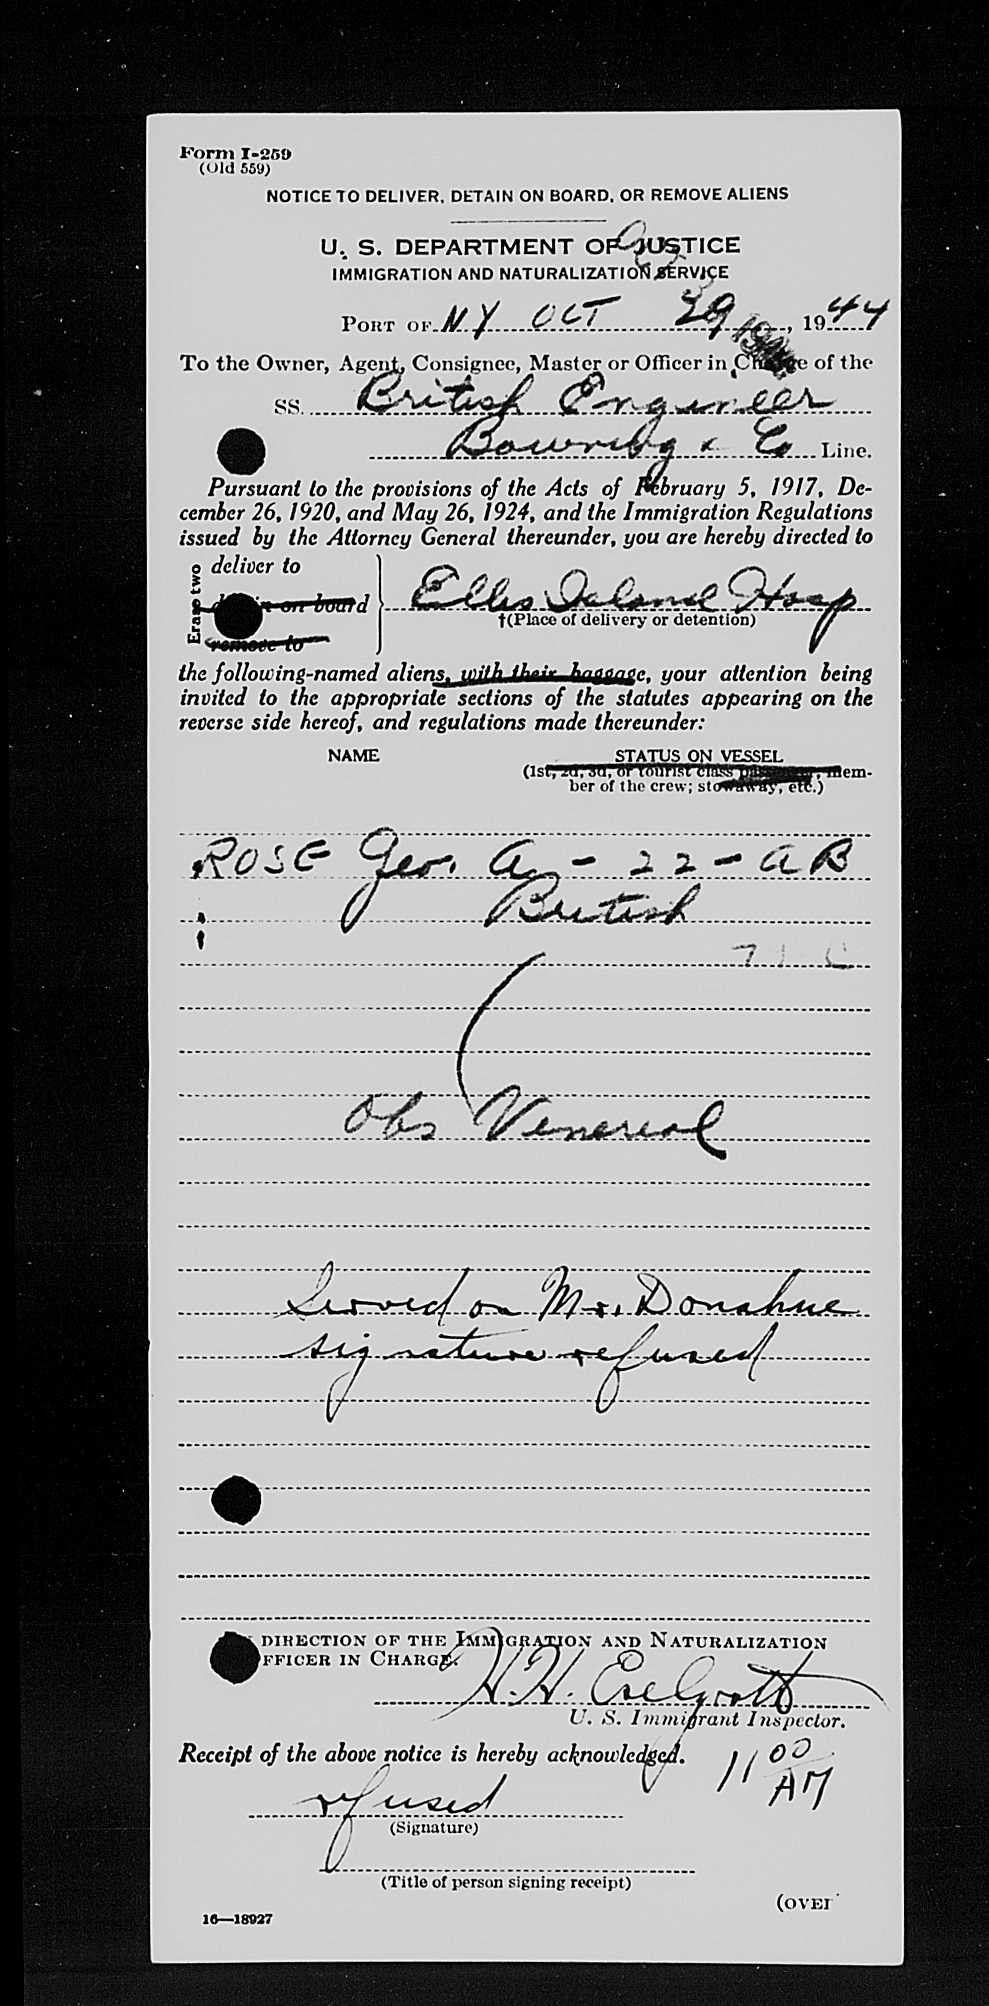 Form I-259
(Old 559)
NOTICE TO DELIVER, DETAIN ON BOARD, OR REMOVE ALIENS
U. S. DEPARTMENT OF JUSTICE
IMMIGRATION AND NATURALIZATION SERVICE
PORT OF NY OCT 29, 1944
To the Owner, Agent, Consignee, Master or Officer in Charge of the
SS. British Engineer
& Co Line.
Pursuant to the provisions of the Acts of February 5, 1917, De-
cember 26, 1920, and May 26, 1924, and the Immigration Regulations
issued by the Attorney General thereunder, you are hereby directed to
Erase two
deliver to
on board
remove to
Ellis Island Hosp
†(Place of delivery or detention)
the following-named aliens, with their baggage, your attention being
invited to the appropriate sections of the statutes appearing on the
reverse side hereof, and regulations made thereunder:
NAME STATUS ON VESSEL
(1st, 2d, 3d, or tourist class passenger, mem-
ber of the crew; stowaway, etc.)
ROSE Geo. A - 22 - AB
British
Obs Venereal
Served on Mr. Donahue
signature refused
DIRECTION OF THE IMMIGRATION AND NATURALIZATION
FFICER IN CHARGE.
H. H.
U. S. Immigrant Inspector.
Receipt of the above notice is hereby acknowledged. 11 00 AM
refused
(Signature)
(Title of person signing receipt)
(OVER
16—18927